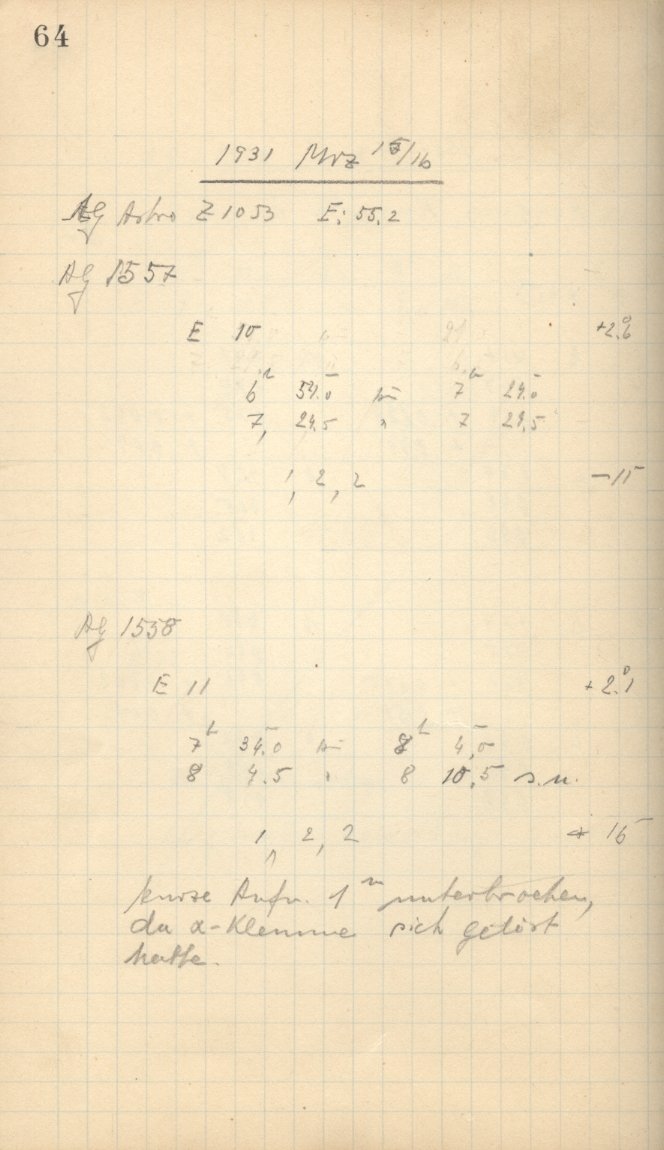 64
1931 Mrz 15/16
AG Astro Z 1053 E: 55.2
AG 1557
E 10 +2.°6
6h 54.0 bis 7h 24.0
7, 24.5 " 7 29.5
1, 2, 2 -15
AG 1558
E 11 +2.°1
7h 34.0 bis 8h 4.0
8 4.5 " 8 10.5 s.u.
1, 2, 2 + 15
kurze Aufn. 1m unterbrochen,
da α-Klemme sich gelöst
hatte.